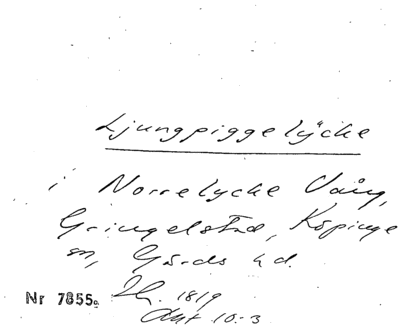 Ljungpiggelÿcke
i Norrelycke Vång,
Gringelstad, Köpinge
sn, Gärds hd.
Nr 7855. 1819
Akt 10:3